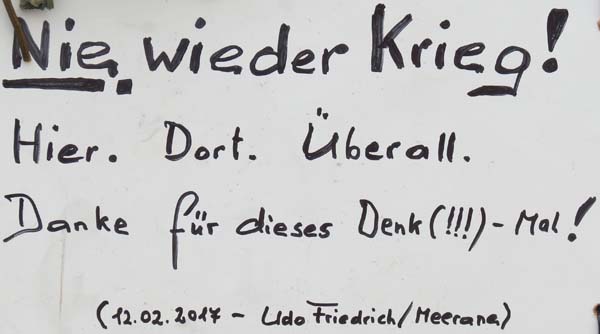 Nie wieder Krieg!
Hier. Dort. Überall.
Danke für dieses Denk(!!!)-Mal!
(12.02.2017 - Udo Friedrich/Meerane)